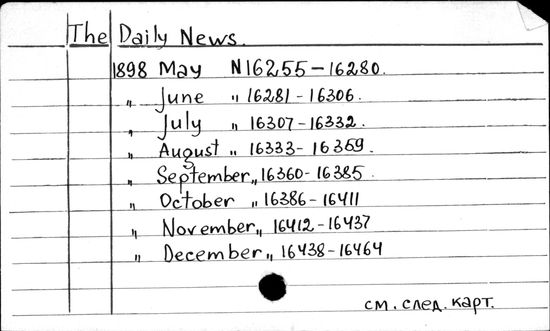 The Daily News.
1898 May N16255-16280.
„ June „ 16281-16306.
„ July „ 16307-16332.
„ August „ 16333-16359.
„ September „ 16360-16385.
„ October „ 16386-16411
„ November „ 16412-16437
„ December „ 16438-16464
см. след. карт.